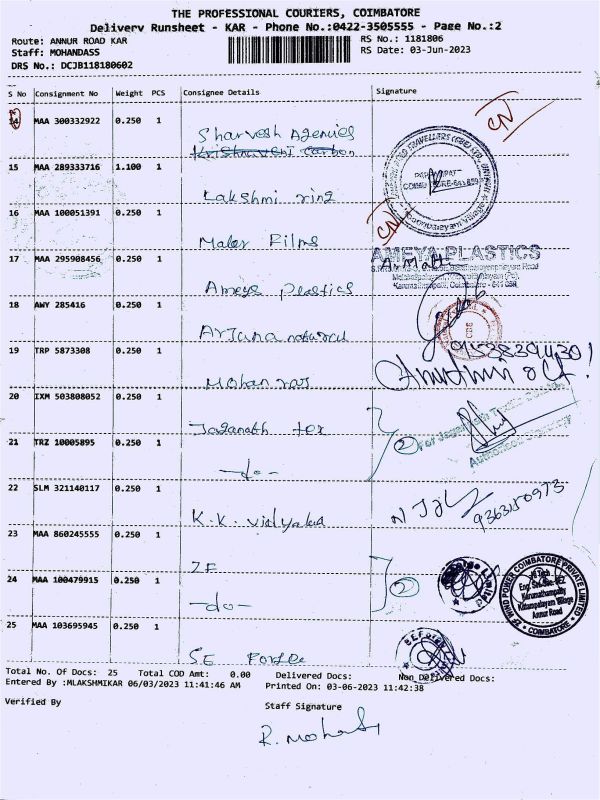 THE PROFESSIONAL COURIERS, COIMBATORE
Delivery Runsheet - KAR - Phone No.:0422-3505555 - Page No.:2
Route: ANNUR ROAD KAR
RS No.: 1181806
Staff: MOHANDASS
RS Date: 03-Jun-2023
DRS No.: DCJB118180602
S No Consignment No Weight PCS Consignee Details Signature
14 MAA 300332922 0.250 1
CN
Sharvesh Agencies
15 MAA 289333716 1.100 1
Lakshmi ring
16 MAA 100051391 0.250 1
CN
Maler Films
17 MAA 295908456 0.250 1
AMEYA PLASTICS
Ameya plastics
18 AWY 285416 0.250 1
Arjuna natural
19 TRP 5873308 0.250 1
Mohan raj
20 IXM 503808052 0.250 1
Jaganath tex
2
21 TRZ 10005895 0.250 1
-do-
22 SLM 321140117 0.250 1
K.K. vidyalaa
9363150973
23 MAA 860245555 0.250 1
ZF
2
24 MAA 100479915 0.250 1
-do-
ZF WIND POWER COIMBATORE PRIVATE LIMITED
Karumathampatty
Kittampalayam Village
Annur Road
COIMBATORE
25 MAA 103695945 0.250 1
S.E Forge
Total No. Of Docs: 25 Total COD Amt: 0.00 Delivered Docs: Non Delivered Docs:
Entered By :MLAKSHMIKAR 06/03/2023 11:41:46 AM Printed On: 03-06-2023 11:42:38
Verified By
Staff Signature